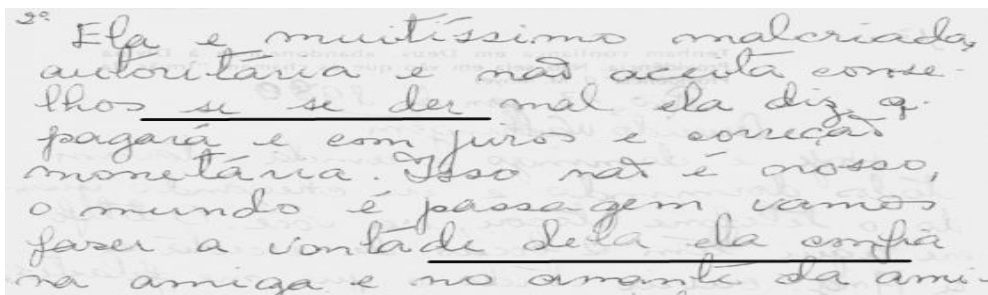 2º
Ela e muitíssimo malcriada,
autoritária e não aceita conse-
lhos se se der mal ela diz q.
pagará e com juros e correção
monetária. Isso não é nosso,
o mundo é passagem vamos
fazer a vontade dela ela confia
na amiga e no amante da ami-